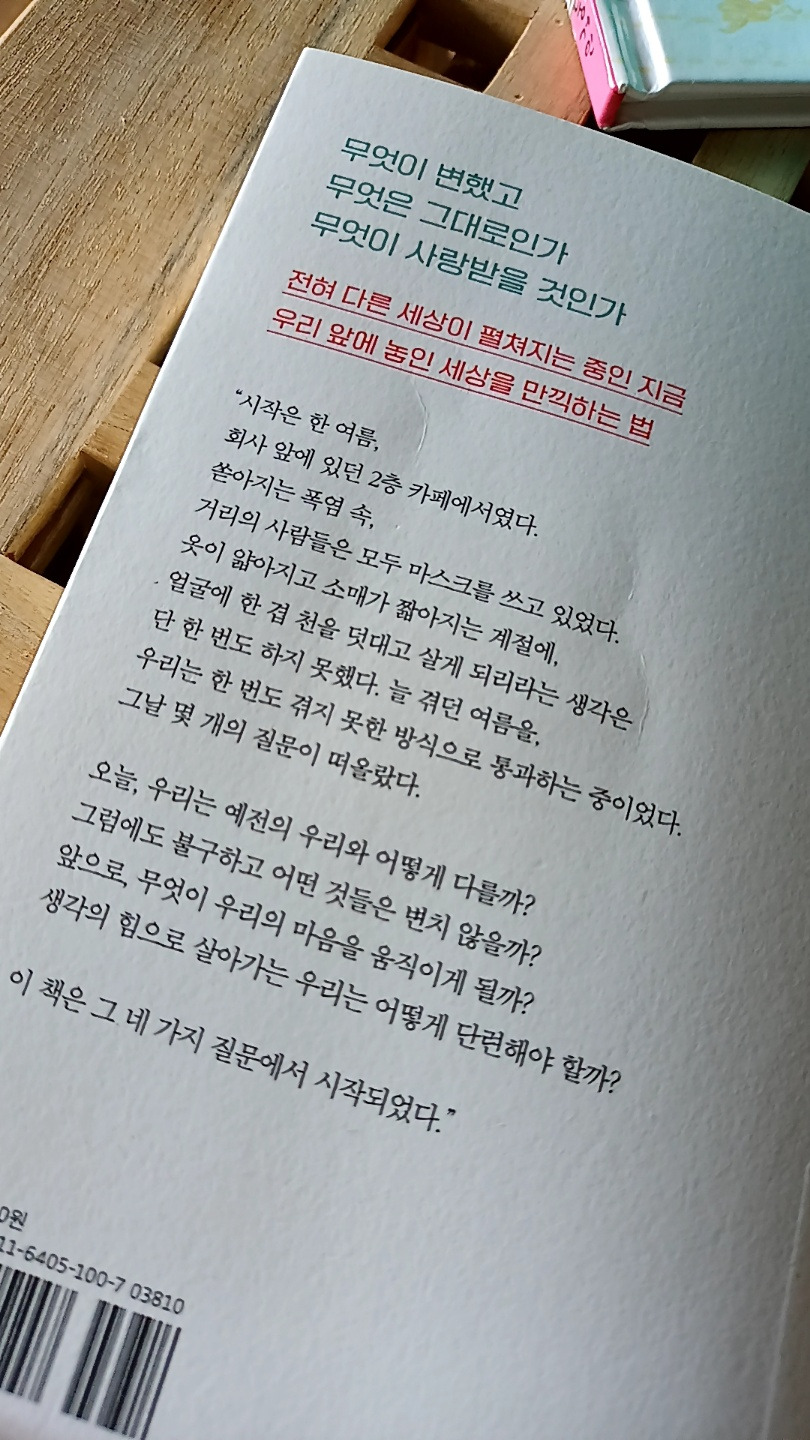 무엇이 변했고
무엇은 그대로인가
무엇이 사랑받을 것인가
전혀 다른 세상이 펼쳐지는 중인 지금
우리 앞에 놓인 세상을 만끽하는 법
“시작은 한 여름,
회사 앞에 있던 2층 카페에서였다.
쏟아지는 폭염 속,
거리의 사람들은 모두 마스크를 쓰고 있었다.
옷이 얇아지고 소매가 짧아지는 계절에,
얼굴에 한 겹 천을 덧대고 살게 되리라는 생각은
단 한 번도 하지 못했다. 늘 겪던 여름을,
우리는 한 번도 겪지 못한 방식으로 통과하는 중이었다.
그날 몇 개의 질문이 떠올랐다.
오늘, 우리는 예전의 우리와 어떻게 다를까?
그럼에도 불구하고 어떤 것들은 변치 않을까?
앞으로, 무엇이 우리의 마음을 움직이게 될까?
생각의 힘으로 살아가는 우리는 어떻게 단련해야 할까?
이 책은 그 네 가지 질문에서 시작되었다.”
0원
11-6405-100-7 03810